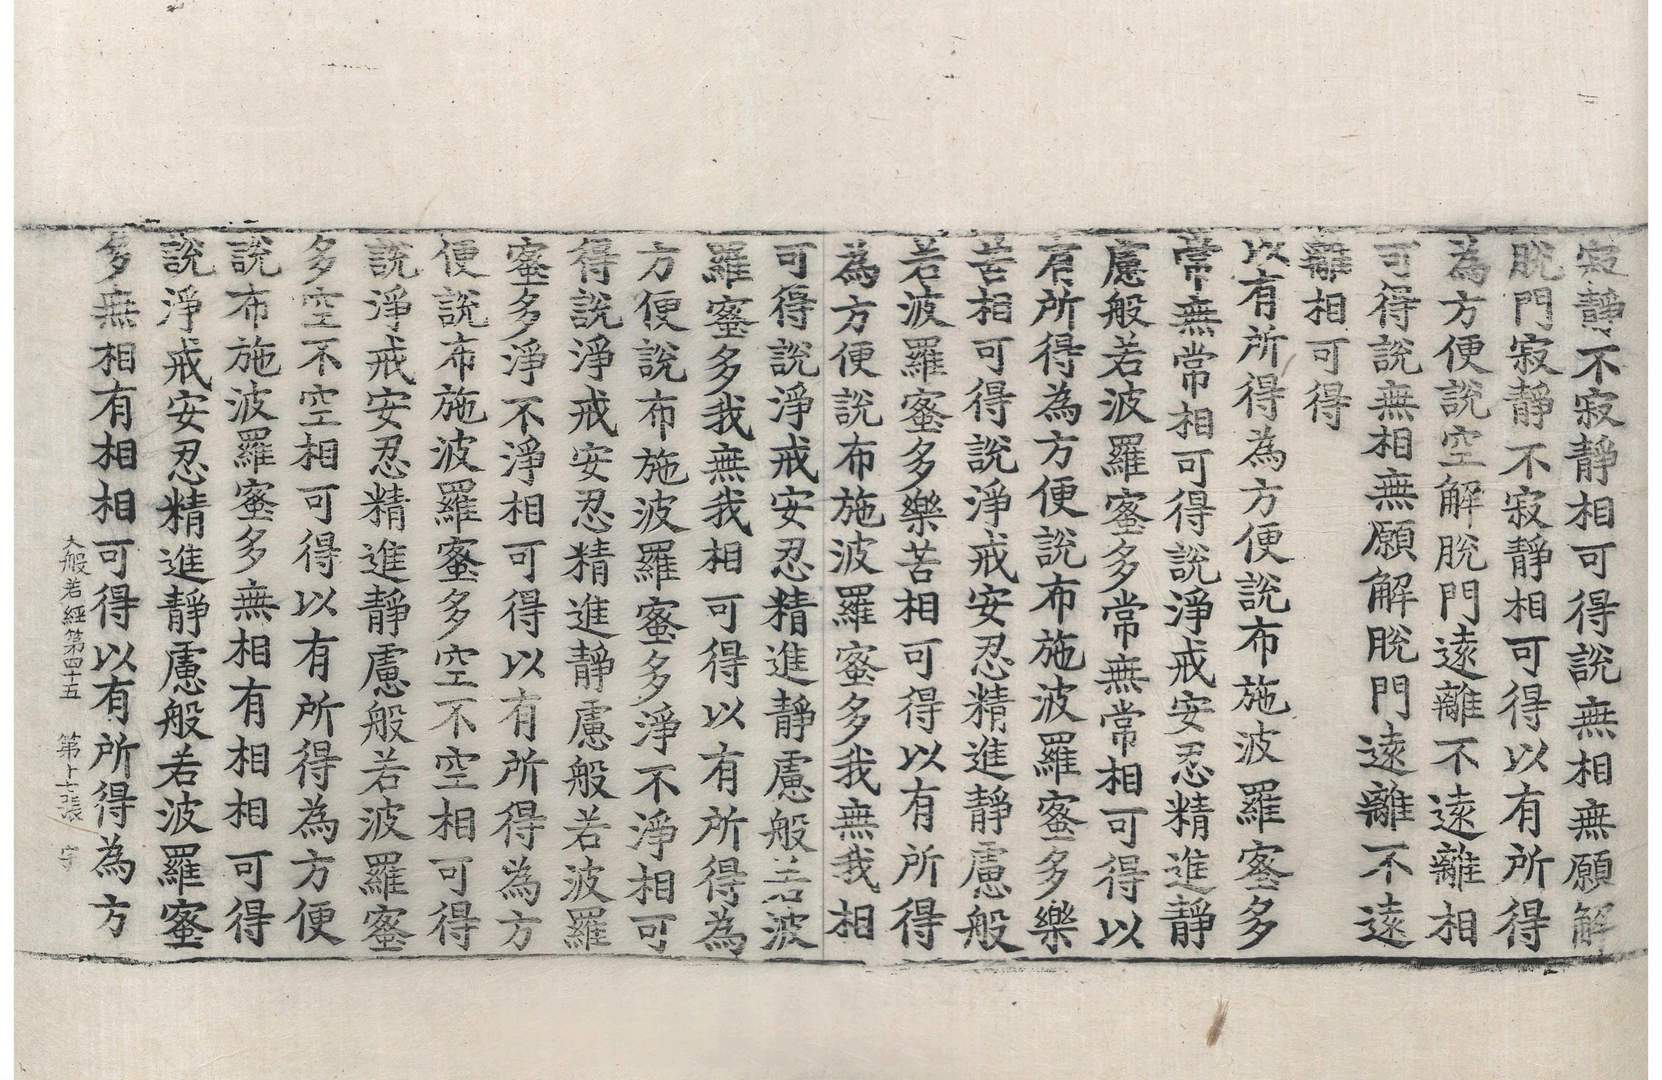 寂靜不寂靜相可得說無相無願解
脫門寂靜不寂靜相可得以有所得
為方便說空解脫門遠離不遠離相
可得說無相無願解脫門遠離不遠
離相可得
以有所得為方便說布施波羅蜜多
常無常相可得說淨戒安忍精進靜
慮般若波羅蜜多常無常相可得以
有所得為方便說布施波羅蜜多樂
苦相可得說淨戒安忍精進靜慮般
若波羅蜜多樂苦相可得以有所得
為方便說布施波羅蜜多我無我相
可得說淨戒安忍精進靜慮般若波
羅蜜多我無我相可得以有所得為
方便說布施波羅蜜多淨不淨相可
得說淨戒安忍精進靜慮般若波羅
蜜多淨不淨相可得以有所得為方
便說布施波羅蜜多空不空相可得
說淨戒安忍精進靜慮般若波羅蜜
多空不空相可得以有所得為方便
說布施波羅蜜多無相有相相可得
說淨戒安忍精進靜慮般若波羅蜜
多無相有相相可得以有所得為方
大般若經第四十五 第十七張 宇